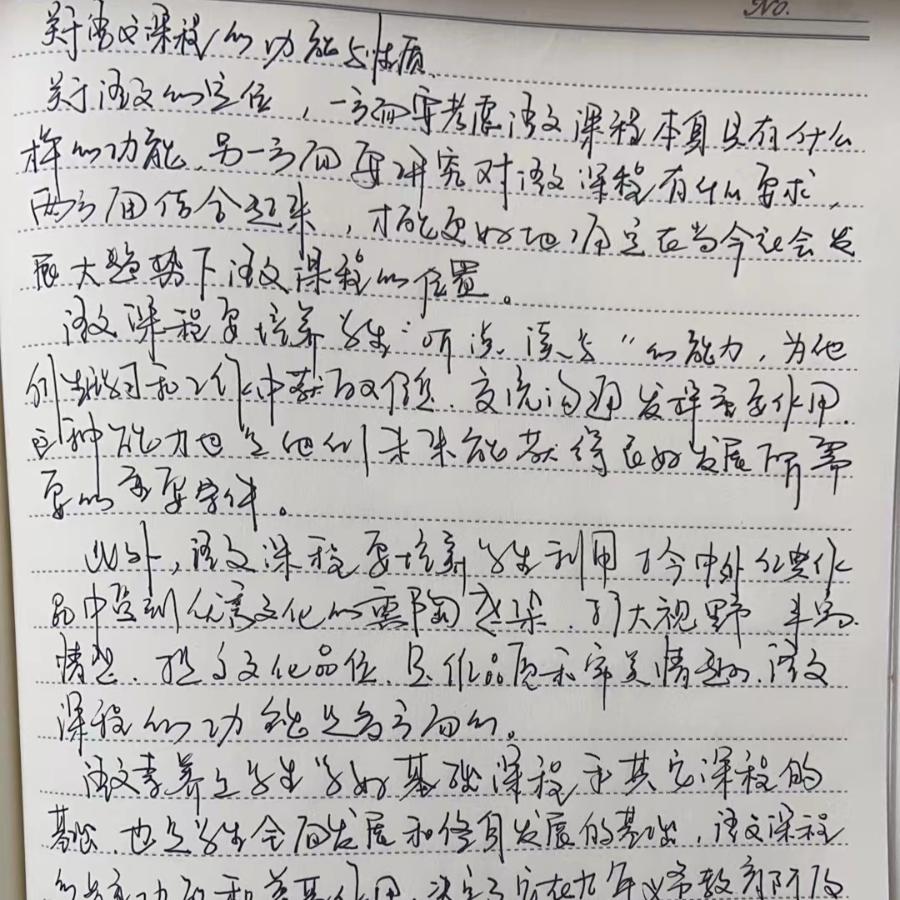 No.
关于语文课程的功能与性质
关于语文的定位，一方面要考虑语文课程本身具有什么
样的功能，另一方面要研究对语文课程有什么要求，
两方面结合起来，才能更好地确定在当今社会发
展大趋势下语文课程的位置。
语文课程要培养学生“听说读写”的能力，为他
们在学习和工作中获取信息、交流沟通发挥重要作用，
这种能力也是他们未来能获得良好发展所需
要的重要条件。
此外，语文课程要培养学生利用古今中外经典作
品中受到优秀文化的熏陶感染，扩大视野，丰富
情感，提高文化品位、文化品质和审美情趣，语文
课程的功能是多方面的。
语文素养是学生学好基础课程和其它课程的
基础，也是学生全面发展和终身发展的基础，语文课程
的多重功能和奠基作用，决定了它在九年义务教育阶段